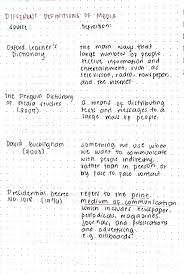 DIFFERENT DEFINITIONS OF MEDIA
source: definition:
Oxford Learner's Dictionary
the main ways that
large number of people
receive information and
entertainment, such as
television, radio, newspaper,
and the internet
The Penguin Dictionary
of Media Studies
(2007)
a means of distributing
texts and messages to a
large mass of people.
David Buckingham
(2003)
something we use when
we want to communicate
with people indirectly,
rather than in person or
by face to face contact
Presidential Decree
NO. 1018 (1976)
refers to the print
medium of communication
which includes newspaper,
periodicals, magazines,
journals, and publications
and advertising
e.g. billboards